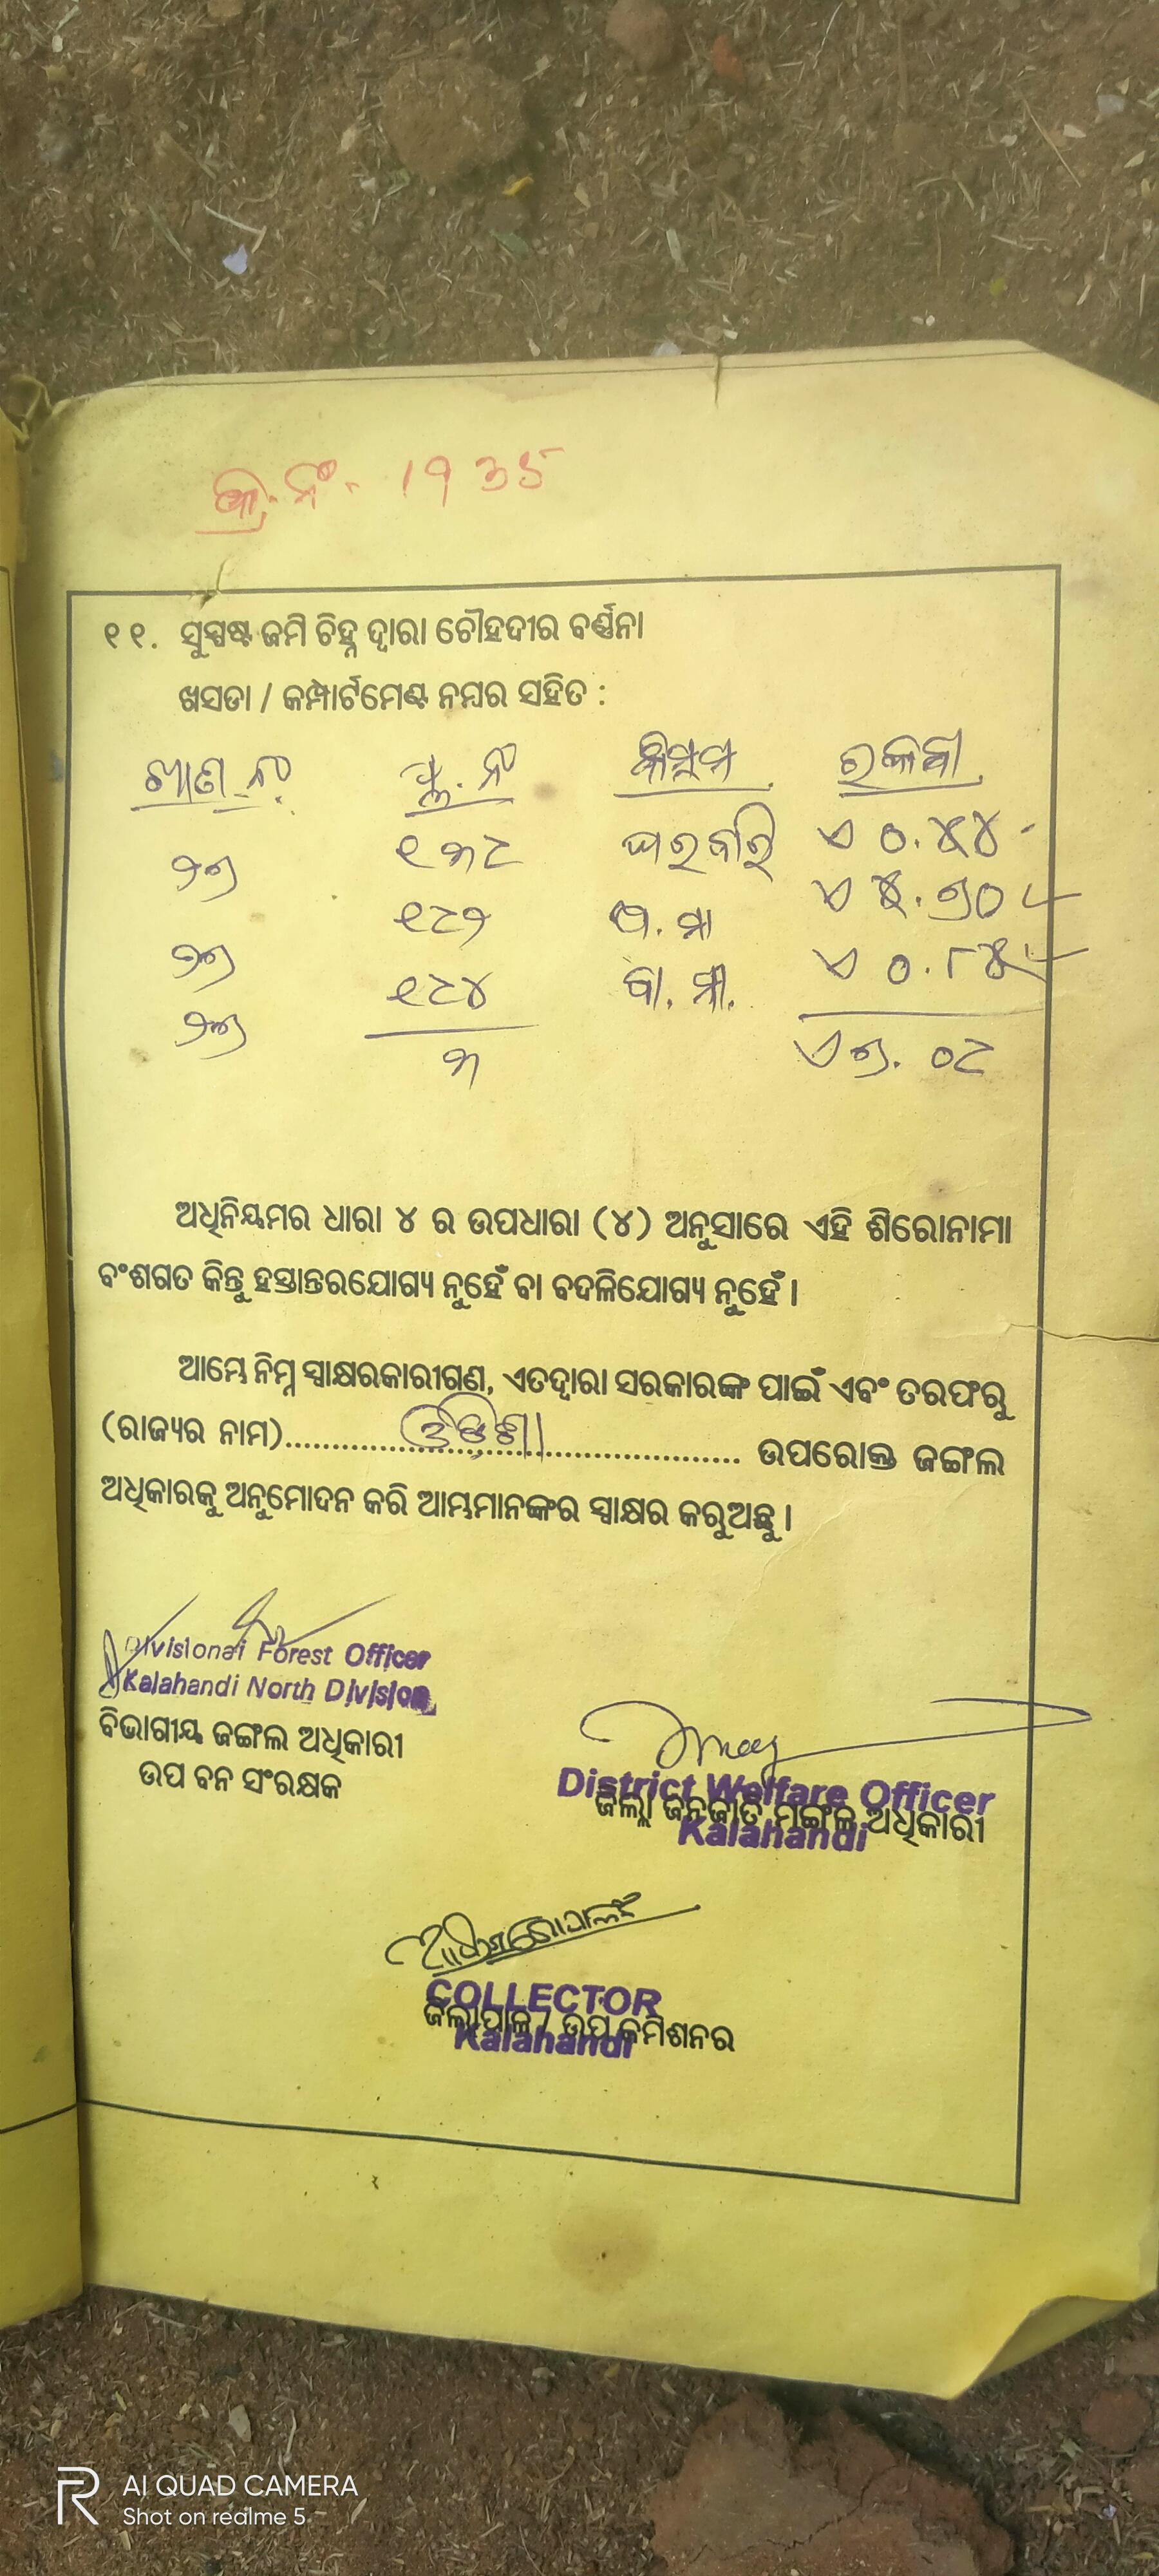 କ୍ର.ନଂ- 1935
୧୧. ସୁସ୍ପଷ୍ଟ ଜମି ଚିହ୍ନ ଦ୍ୱାରା ଚୌହଦୀର ବର୍ଣ୍ଣନା
ଖସଡା / କମ୍ପାର୍ଟମେଣ୍ଟ ନମ୍ବର ସହିତ :
ଖାତା ନଂ ପ୍ଲ. ନଂ କିସମ ରକବା
୧୩୮ ଘରବାରି ଏ ୦.୪୪
୧୮୨
୧୮୪
୩ ୦୮
ଅଧିନିୟମର ଧାରା ୪ ର ଉପଧାରା (୪) ଅନୁସାରେ ଏହି ଶିରୋନାମା
ବଂଶଗତ କିନ୍ତୁ ହସ୍ତାନ୍ତରଯୋଗ୍ୟ ନୁହେଁ ବା ବଦଳିଯୋଗ୍ୟ ନୁହେଁ ।
ଆମ୍ଭେ ନିମ୍ନ ସ୍ୱାକ୍ଷରକାରୀଗଣ, ଏତଦ୍ୱାରା ସରକାରଙ୍କ ପାଇଁ ଏବଂ ତରଫରୁ
(ରାଜ୍ୟର ନାମ)........ଓଡ଼ିଶା........ ଉପରୋକ୍ତ ଜଙ୍ଗଲ
ଅଧିକାରକୁ ଅନୁମୋଦନ କରି ଆମ୍ଭମାନଙ୍କର ସ୍ୱାକ୍ଷର କରୁଅଛୁ ।
Divisional Forest Officer
Kalahandi North Division
ବିଭାଗୀୟ ଜଙ୍ଗଲ ଅଧିକାରୀ
ଉପ ବନ ସଂରକ୍ଷକ
District Welfare Officer
ଜିଲ୍ଲା ଜନଜାତି ମଙ୍ଗଳ ଅଧିକାରୀ
Kalahandi
COLLECTOR
ଜିଲ୍ଲାପାଳ / ଉପ କମିଶନର
Kalahandi
AI QUAD CAMERA
Shot on realme 5